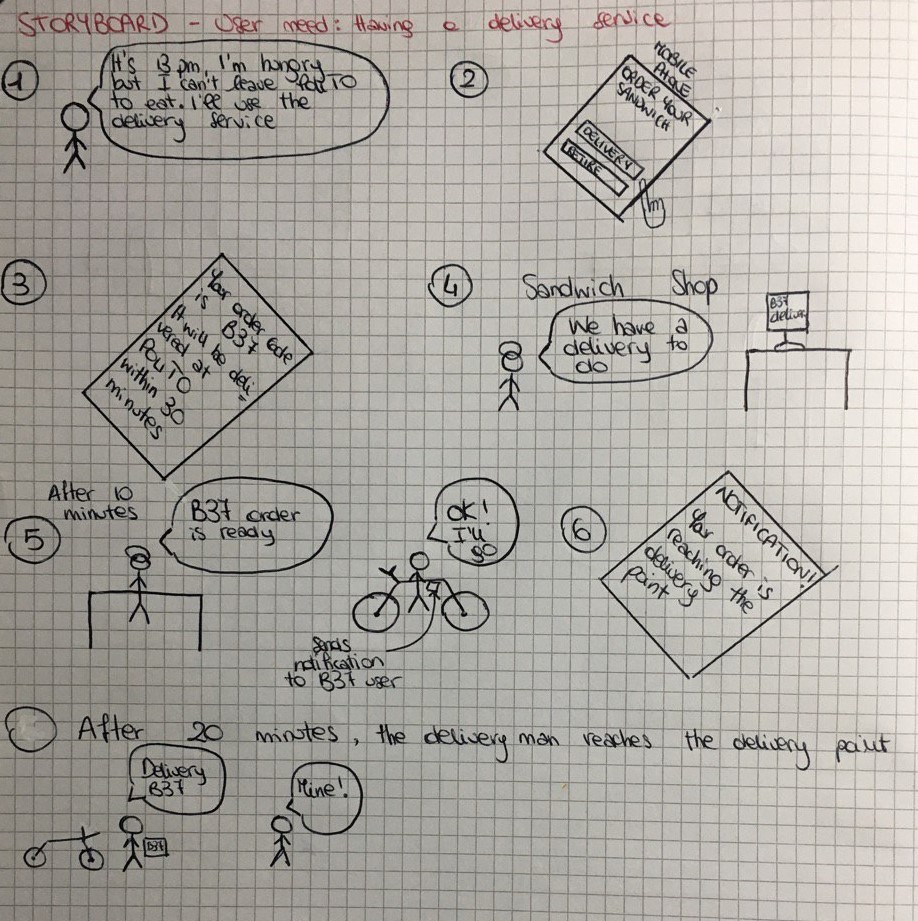 STORYBOARD - User need: Having a delivery service
1
It's 13 pm, I'm hungry
but I can't leave PoliTO
to eat. I'll use the
delivery service
2
MOBILE
PHONE
ORDER YOUR
SANDWICH
DELIVERY
RETIRE
3
Your order code
is B37
It will be deli
vered at
POLITO
within 30
minutes
4
Sandwich Shop
We have a
delivery to
do
B37
deliver
After 10
minutes
5
B37 order
is ready
OK!
I'll
go
Sends
notification
to B37 user
6
NOTIFICATION!
Your order is
reaching the
delivery
point
After 20 minutes, the delivery man reaches the delivery point
Delivery
B37
B37
Mine!